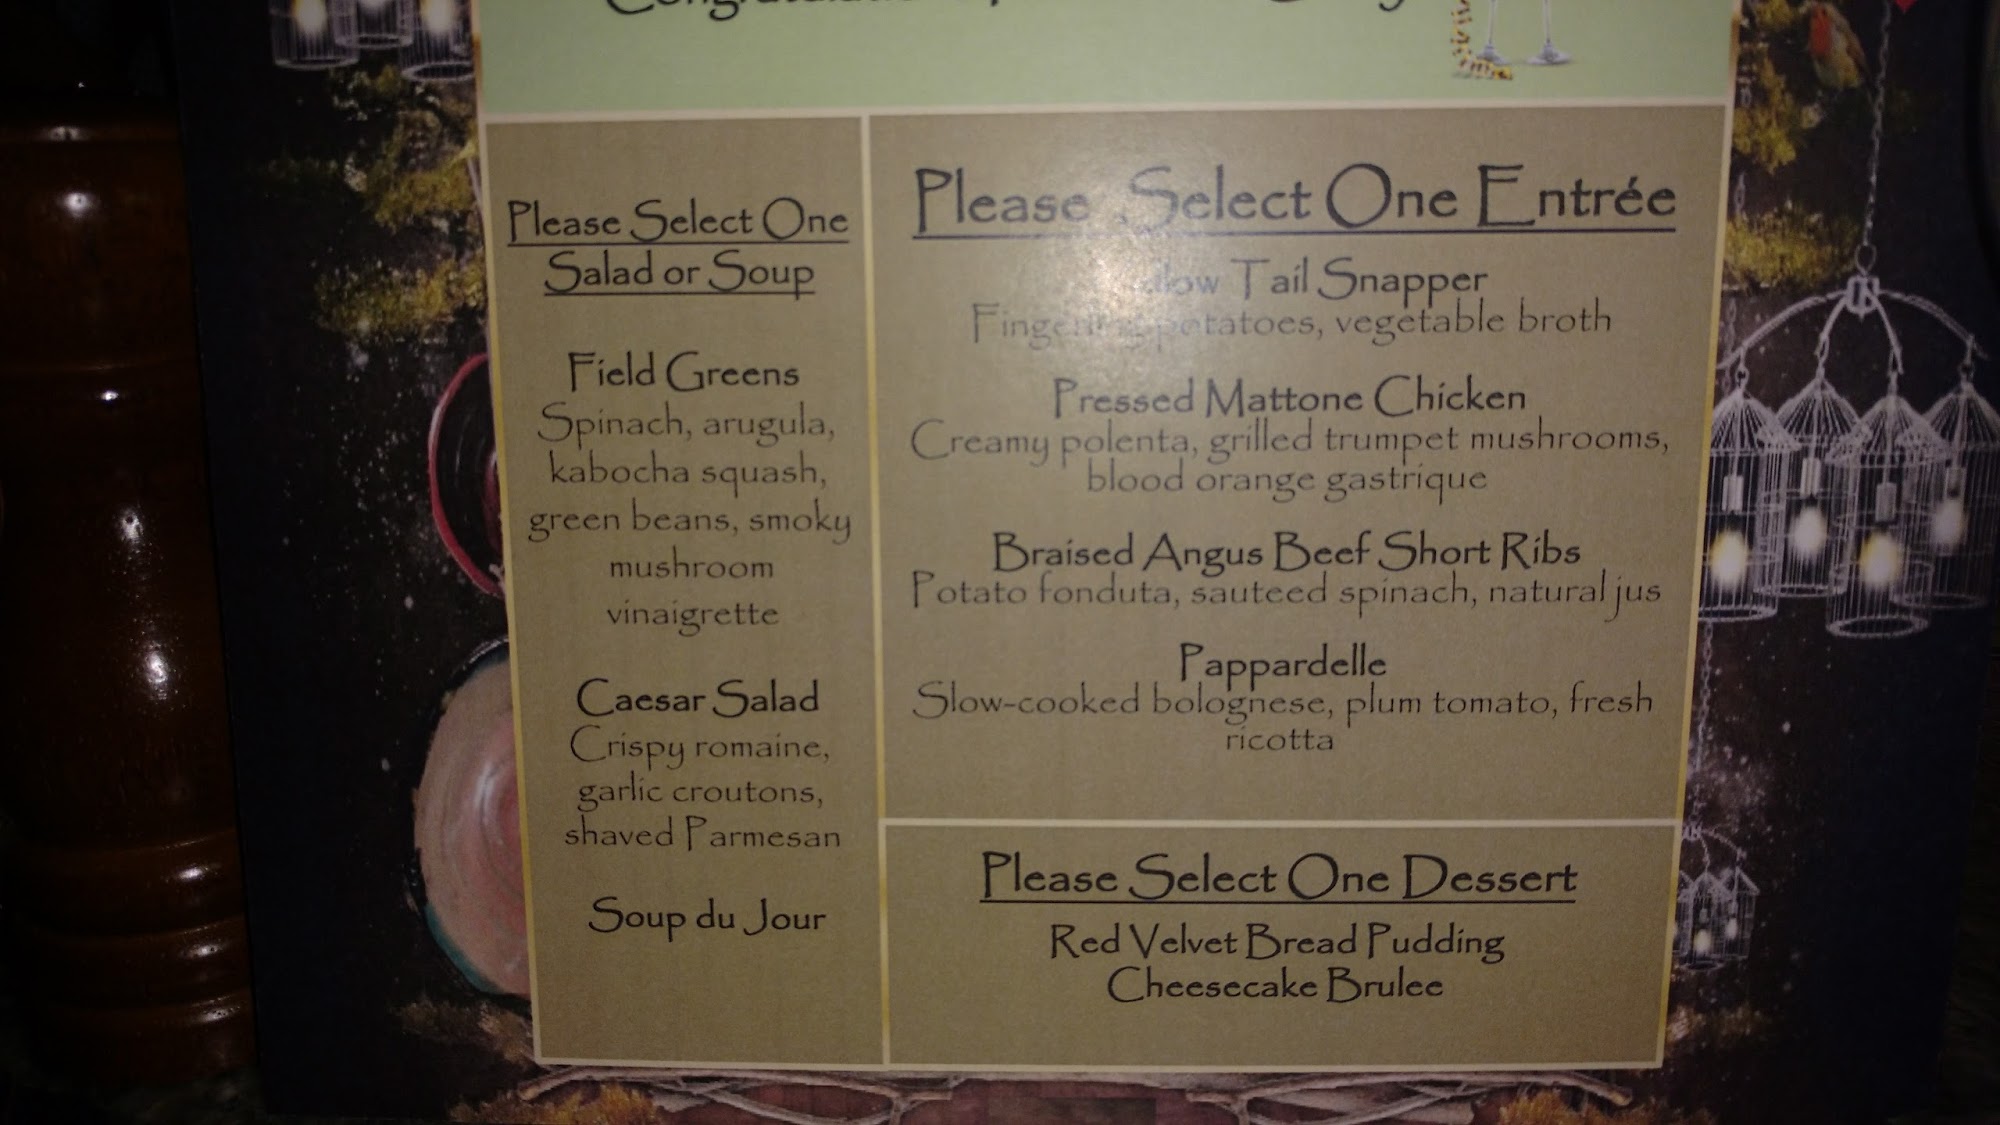 Please Select One
Salad or Soup
Field Greens
Spinach, arugula,
kabocha squash,
green beans, smoky
mushroom
vinaigrette
Caesar Salad
Crispy romaine,
garlic croutons,
shaved Parmesan
Soup du Jour
Please Select One Entrée
Tail Snapper
potatoes, vegetable broth
Pressed Mattone Chicken
Creamy polenta, grilled trumpet mushrooms,
blood orange gastrique
Braised Angus Beef Short Ribs
Potato fonduta, sauteed spinach, natural jus
Pappardelle
Slow-cooked bolognese, plum tomato, fresh
ricotta
Please Select One Dessert
Red Velvet Bread Pudding
Cheesecake Brulee